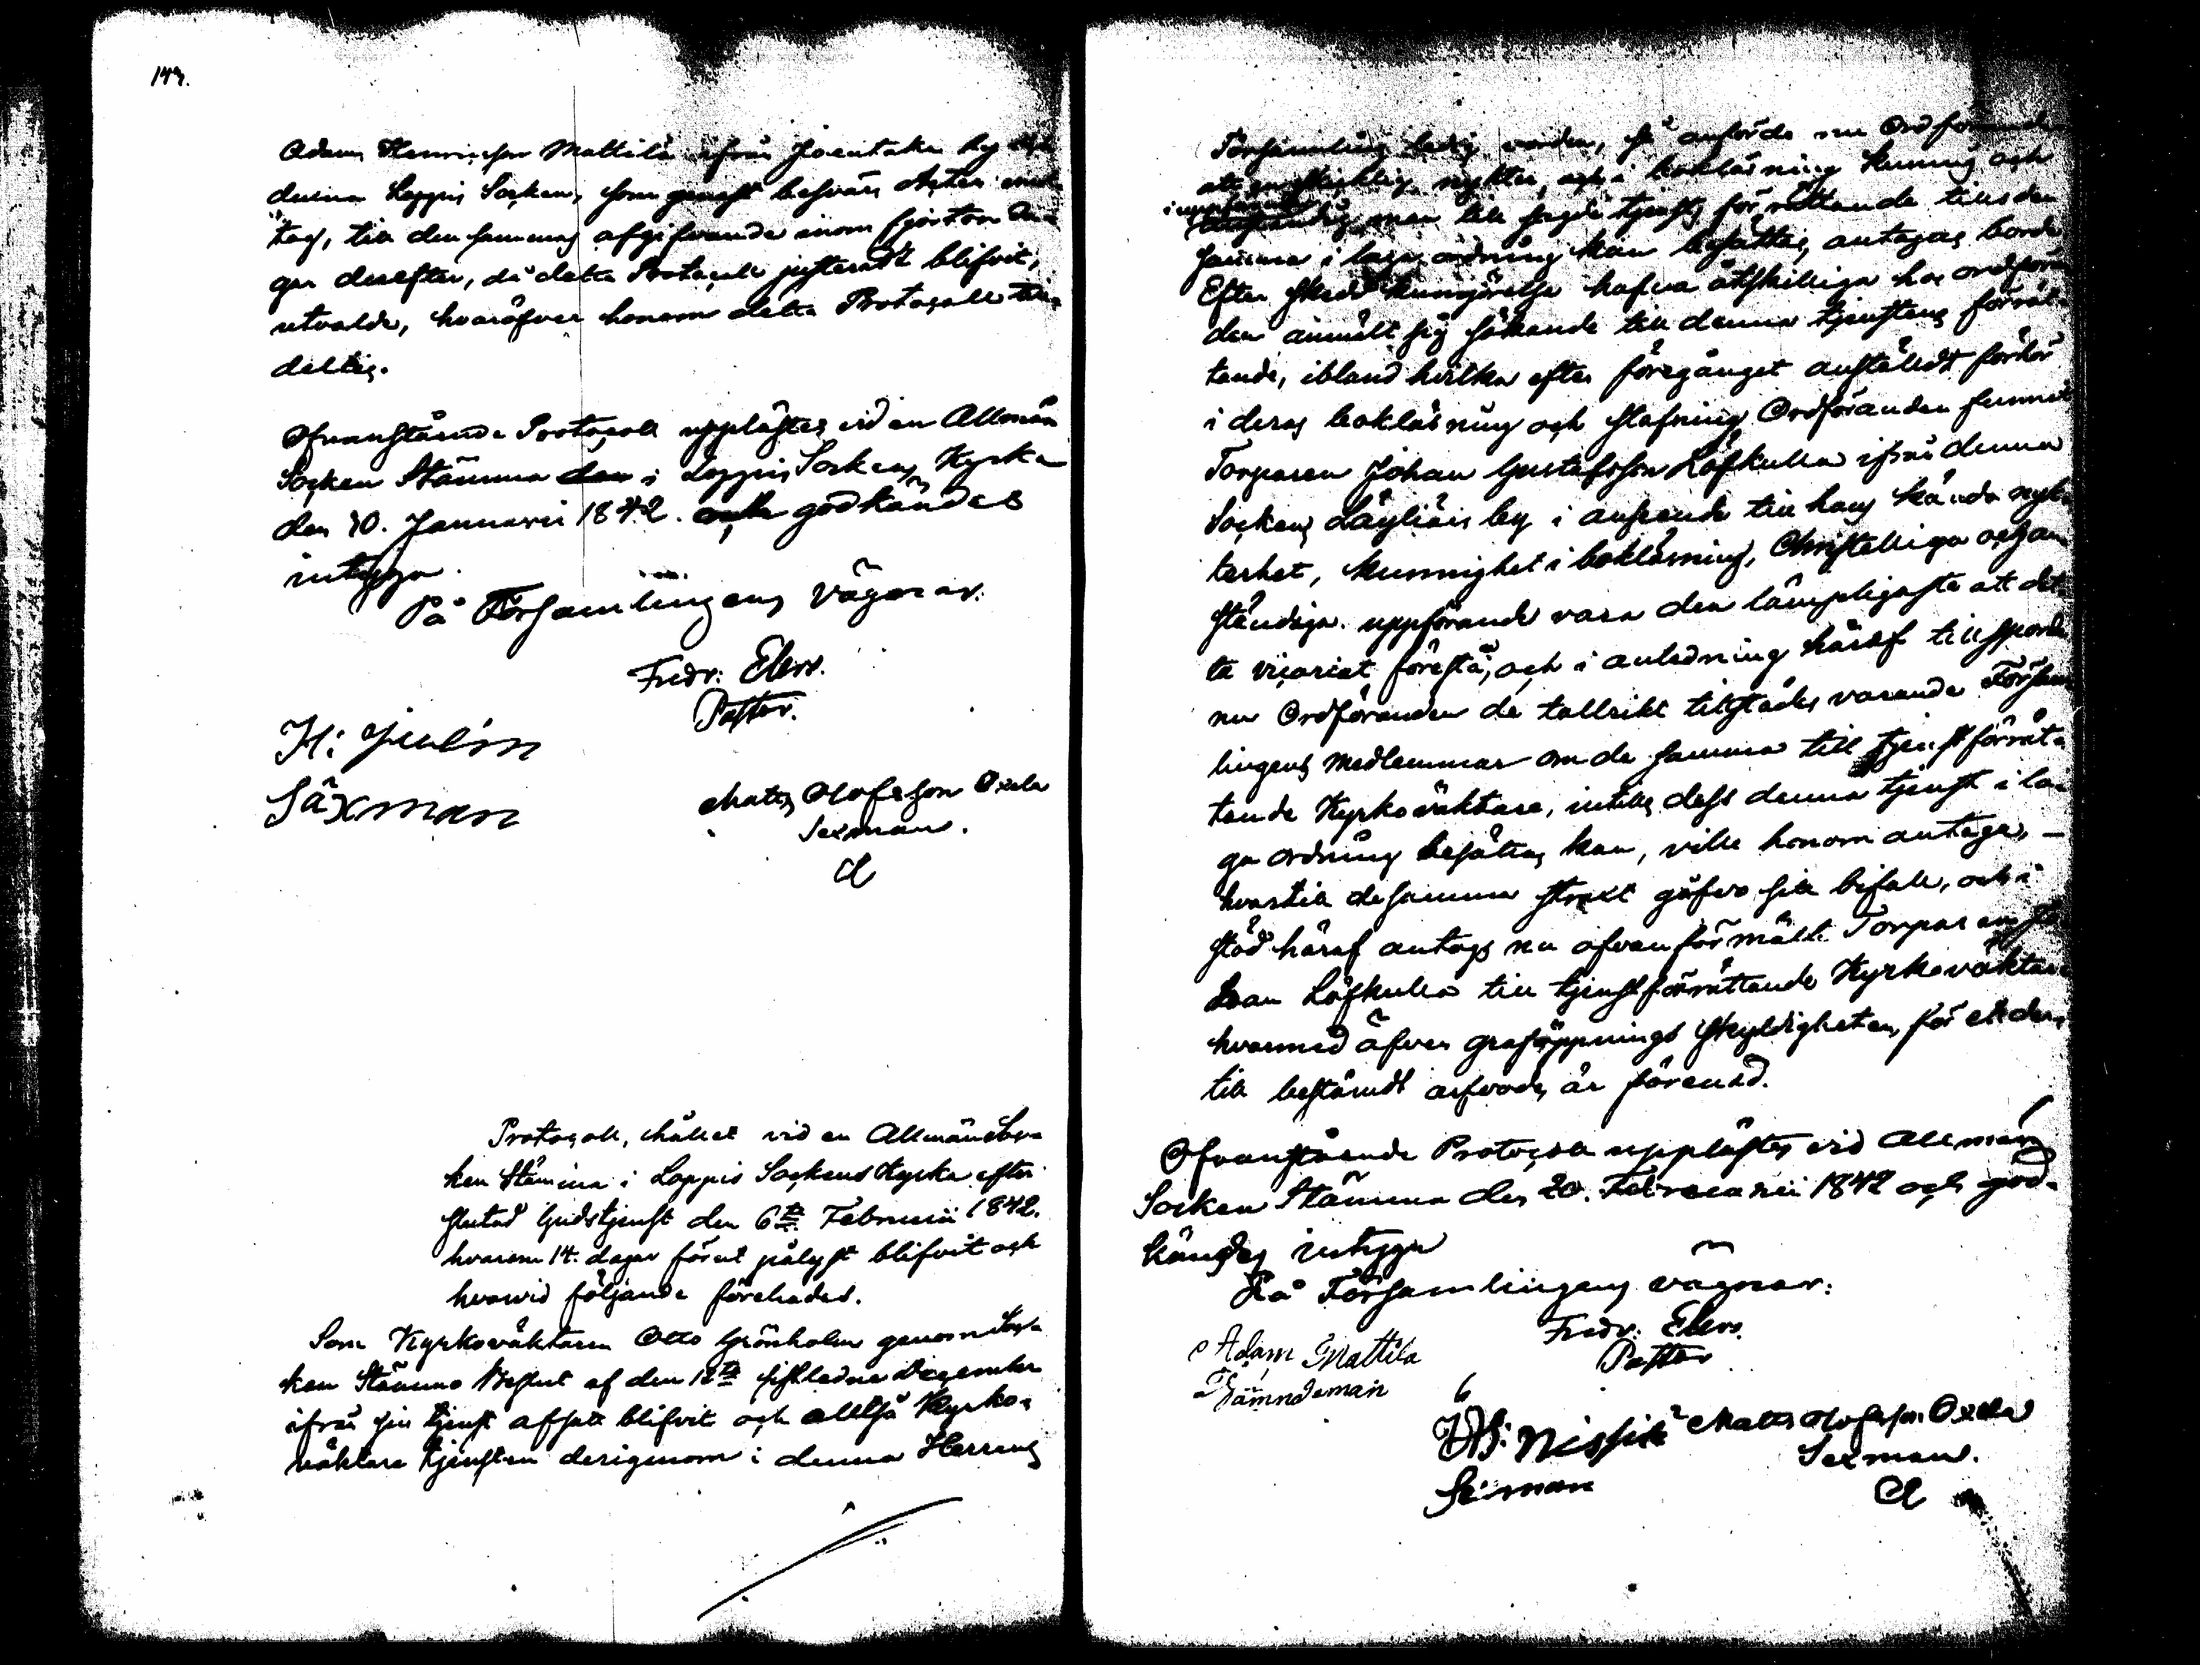 144.
Adam Henricsson Mattila ifrån Joentaka by och
denna Loppis Socken, som genast besvärs Acten emot
tog, till den sammas afgifvande inom fjorton da-
gar derefter, då detta Protocoll justeradt blifvit,
utvalde, hvaröfver honom detta Protocoll med-
deltes.
Ofvanstående Protocoll upplästes vid en Allmän
Socken Stämma i Loppis Sockens Kyrka
den 30. Januarii 1842. godkändes
intyga.
På Församlingens vägnar.
Fredr: Elers.
Pastor.
H: Julin
Säxman
Matts Olofsson Oxala
Sexman.
Protocoll, hållet vid en Allmän Soc-
ken Stämma i Loppis Sockens Kyrka efter
slutad Gudstjenst den 6te Februarii 1842.
hvarom 14. dagar förut pålyst blifvit och
hvarvid följande förehades.
Som Kyrkoväktaren Otto Grönholm genom Soc-
ken Stämmo Beslut af den 12te sistledne December
ifrån sin tjenst afsatt blifvit och alltså Kyrko-
väktare tjensten derigenom i denna Herrans
Församling ledig vorden, så anförde nu Ordföranden
att en skicklig nykter, och i bokläsning kunnig och
i uppförande
man till sagde tjensts förrättande tills den
samma i laga ordning kan besättas, antagas borde
Efter skedd kungörelse hafva åtskilliga hos ordföran
den anmält sig sökande till denna tjenstens förrät-
tande, ibland hvilka efter föregånget anställdt förhör
i deras bokläsning och stafning Ordföranden funnit
Torparen Johan Gustafsson Löfkulla ifrån denna
Sockens Läyliäis by i anseende till hans kända nyk-
terhet, kunnighet i bokläsning, Christelliga och an-
ständiga uppförande vara den lämpligaste att det-
ta vicariat förestå, och i anledning häraf tillsporde
nu Ordföranden de tallrikt tillstädes varande Försam
lingens medlemmar om de samma till tjenstförrät-
tande Kyrkoväktare, intills dess denna tjenst i la-
ga ordning besättas kan, ville honom antaga, -
hvartill desamma strax gåfvo sitt bifall, och i
stöd häraf antogs nu ofvanförmälte Torparen Jo
han Löfkulla till tjenstförrättande Kyrkoväktare
hvarmed äfven graföppnings skyldigheten, för ett der-
till bestämdt arfvode, är förenad.
Ofvanstående Protocoll upplästes vid Allmän
Socken Stämma den 20. Februarii 1842 och god-
kändes intyga
På Församlingens vägnar:
Fredr: Elers.
Pastor
Adam Mattila
Nämndeman
Nissilä
Sexman
Matts Olofsson Oxala
Sexman.